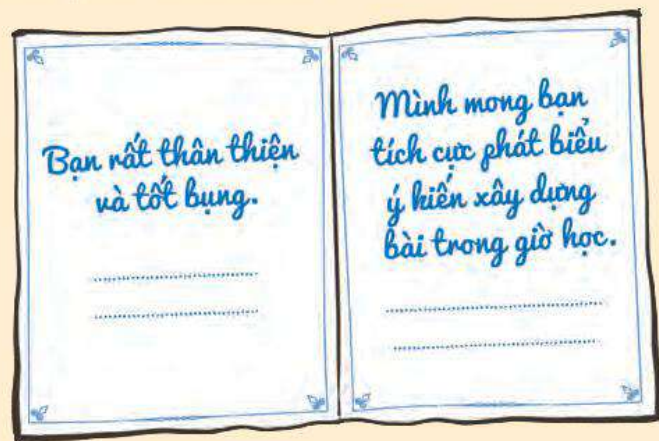 Bạn rất thân thiện
và tốt bụng.
Mình mong bạn
tích cực phát biểu
ý kiến xây dựng
bài trong giờ học.